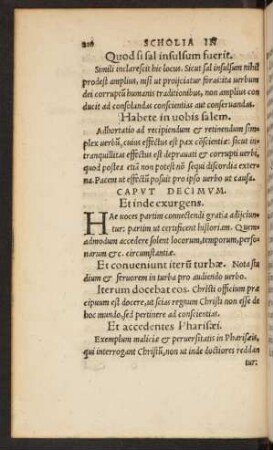 216 SCHOLIA IN
Quod si sal insulsum fuerit.
Simili inclarescit hic locus. Sicut sal insulsum nihil
prodest amplius, nisi ut projiciatur foras: ita uerbum
dei corruptũ humanis traditionibus, non amplius con
ducit ad consolandas conscientias aut conseruandas.
Habete in uobis salem.
Adhortatio ad recipiendum et retinendum sim
plex uerbũ, cuius effectus est pax cõscientiæ: sicut in-
tranquillitas effectus est deprauati et corrupti uerbi,
quod postea etiã non potest nõ sequi discordia exter
na. Pacem ut effectũ posuit pro ipso uerbo ut causa.
CAPVT DECIMVM.
Et inde exurgens.
HAe uoces partim connectendi gratia adijciun
tur: partim ut certificent historiam. Quem
admodum accedere solent locorum, temporum, perso
narum &c. circumstantiæ.
Et conueniunt iterũ turbæ. Nota stu
dium et feruorem in turba pro audiendo uerbo.
Iterum docebat eos. Christi officium præ
cipuum est docere, ut scias regnum Christi non esse de
hoc mundo, sed pertinere ad conscientias.
Et accedentes Pharisæi.
Exemplum maliciæ et peruersitatis in Pharisæis,
qui interrogant Christũ, non ut inde doctiores reddan
tur: